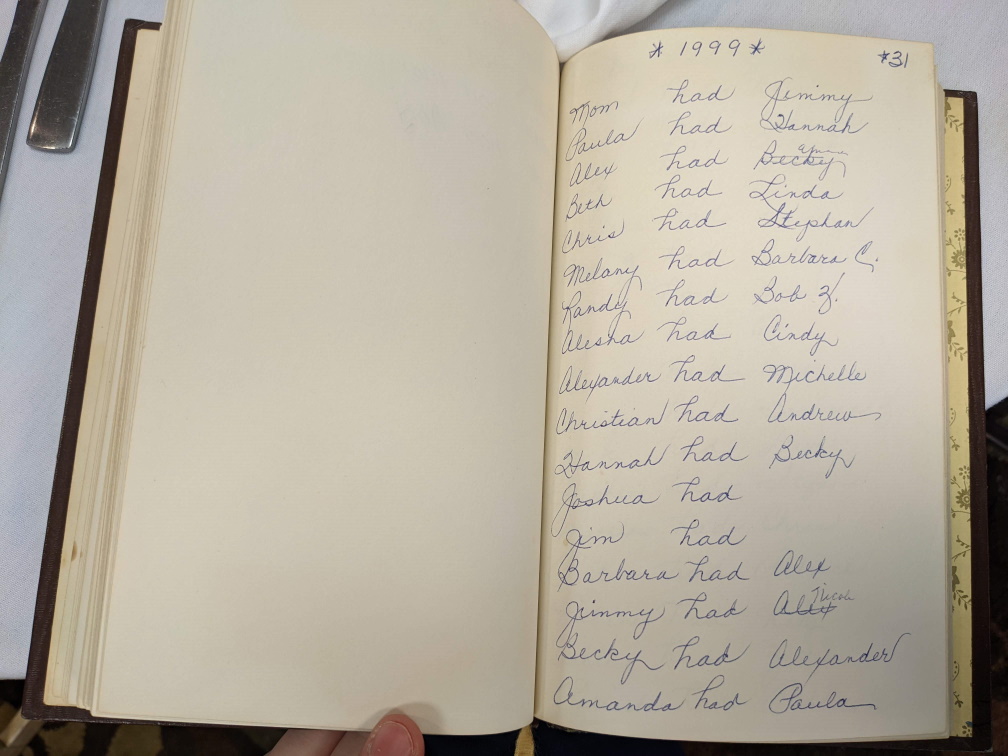 * 1999 * *31
Mom had Jimmy
Paula had Hannah
Alex had Becky
Beth had Linda
Chris had Stephan
Melany had Barbara C.
Randy had Bob Z.
Alesha had Cindy
Alexander had Michelle
Christian had Andrew
Hannah had Becky
Joshua had
Jim had
Barbara had Alex
Jimmy had Alex Nicole
Becky had Alexander
Amanda had Paula